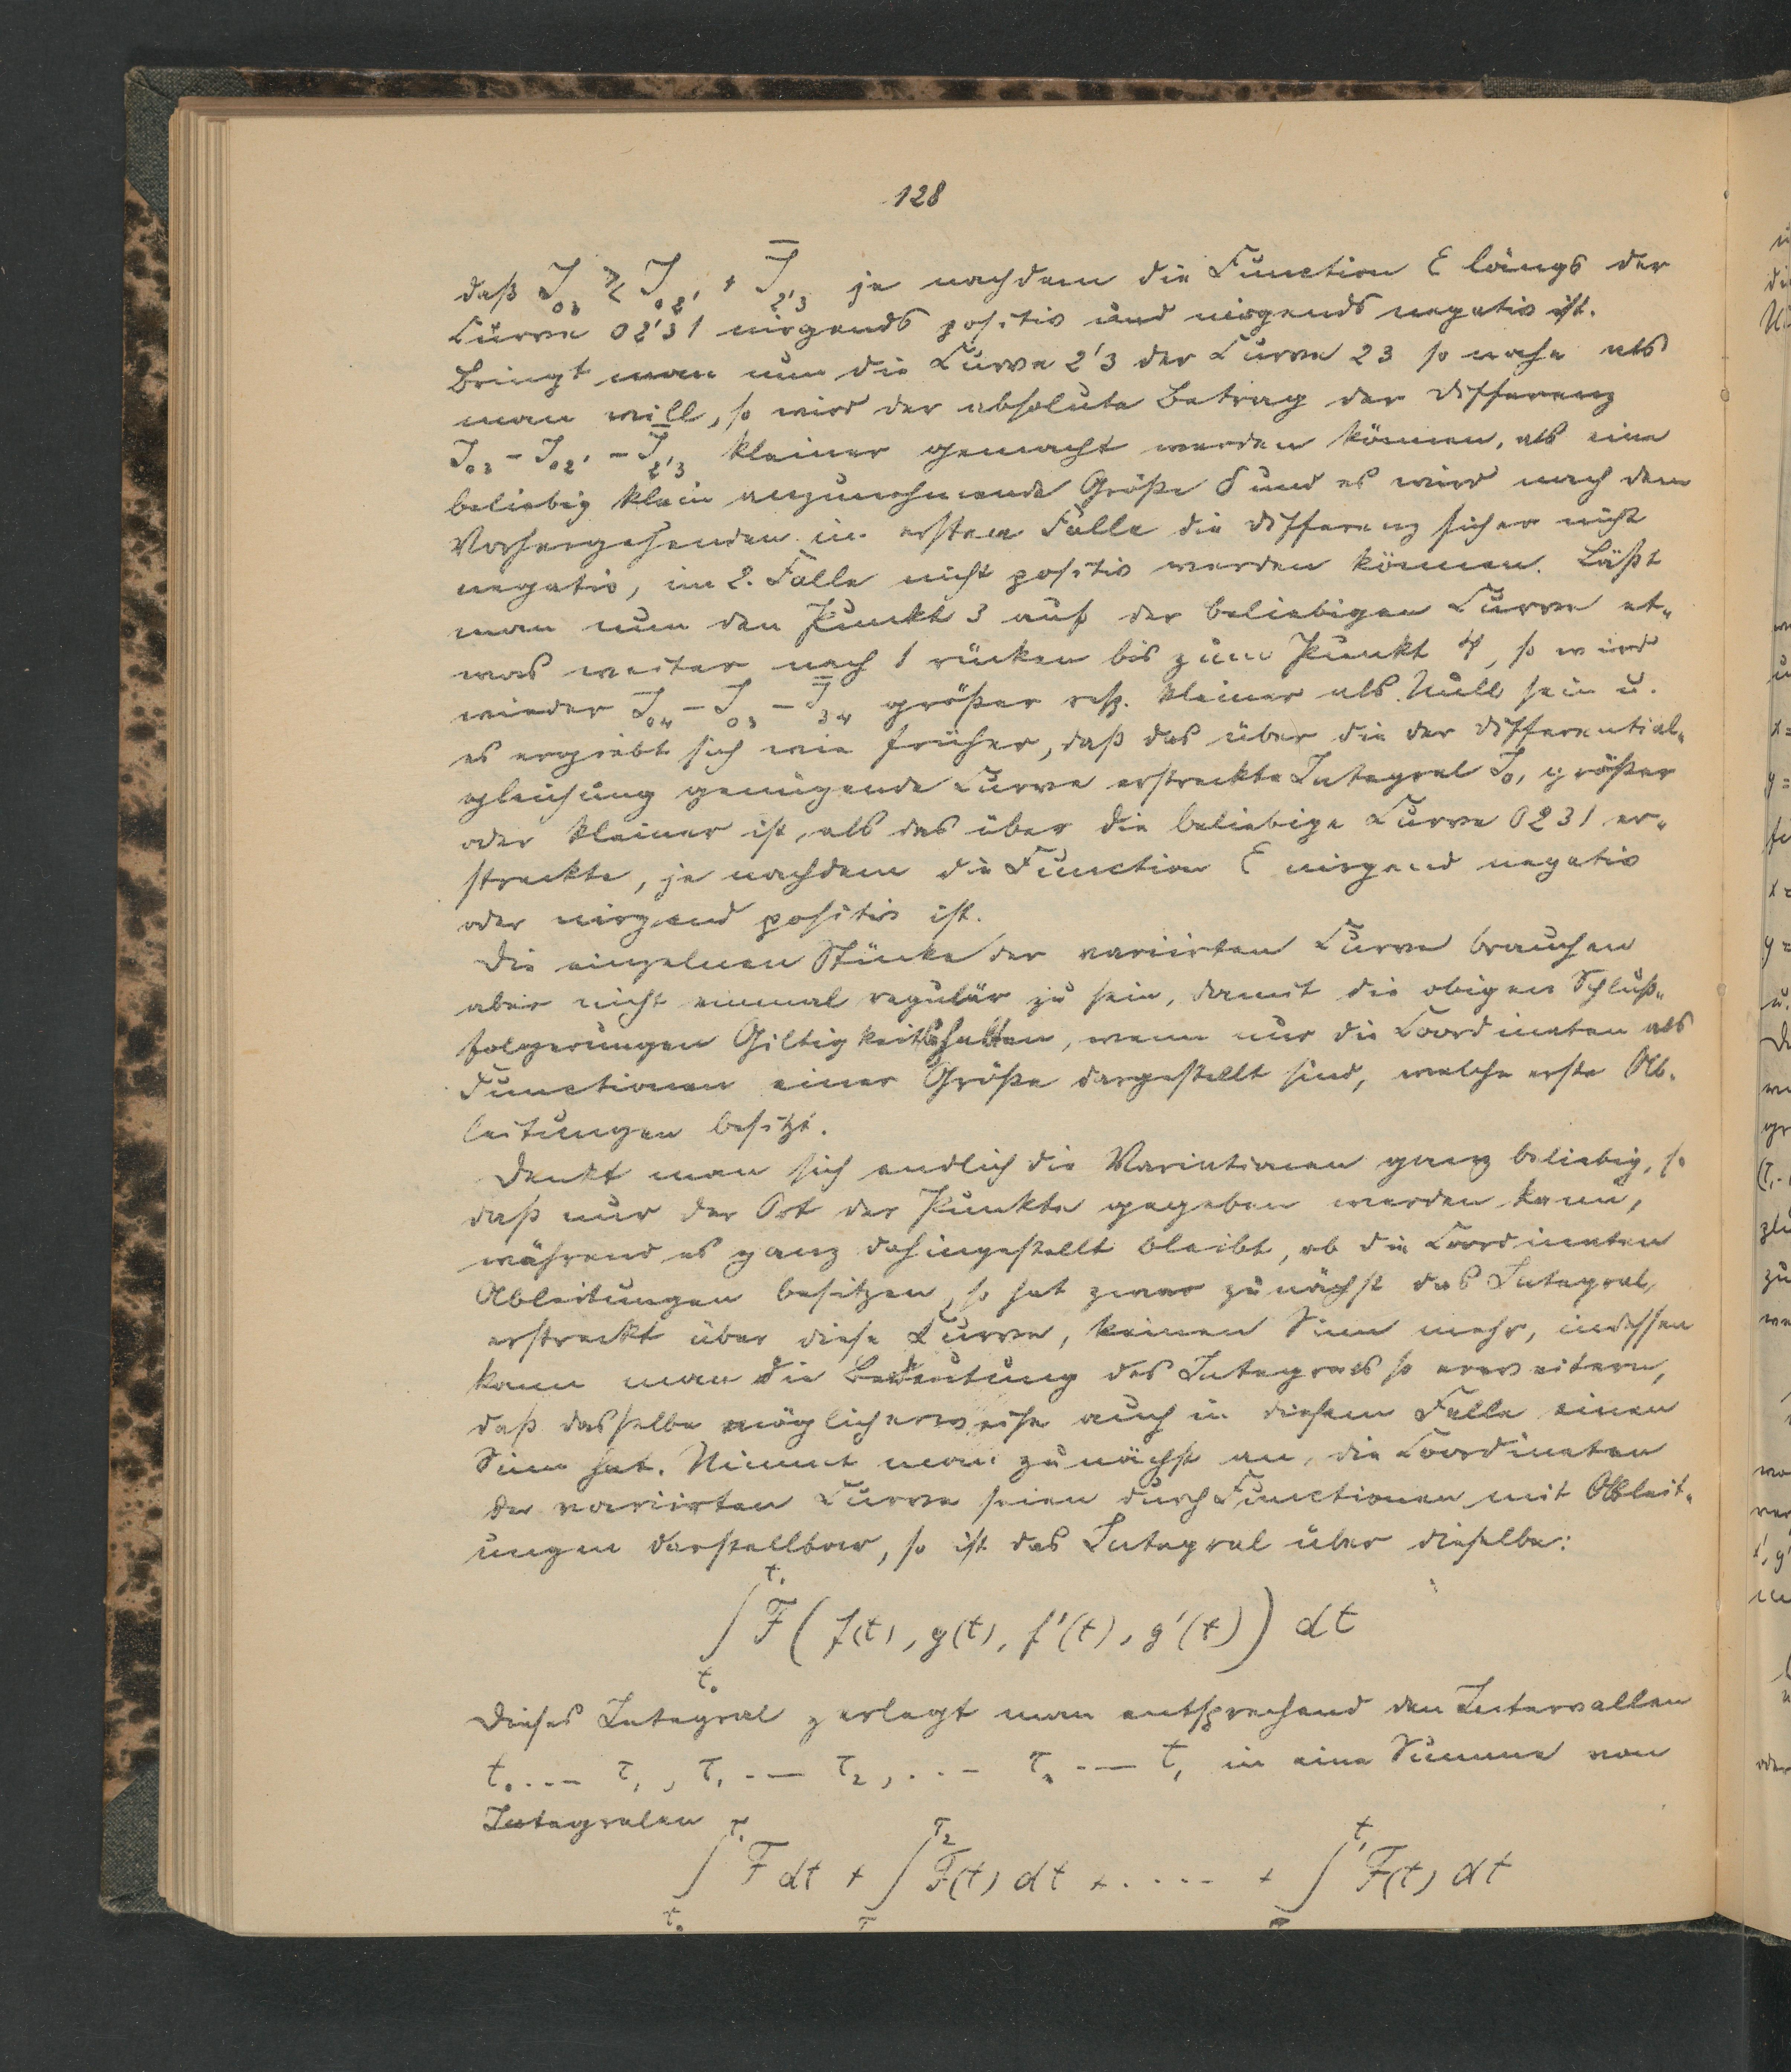 128
daß J₀₃ ≷ J₀₂' + J̅₂'₃ je nachdem die Function E längs der
Curve 02'31 nirgends positiv und nirgends negativ ist.
Bringt man nun die Curve 2'3 der Curve 23 so nahe als
man will, so wird der absolute Betrag der Differenz
J₀₃ - J₀₂' - J̅₂'₃ kleiner gemacht werden können, als eine
beliebig klein anzunehmende Größe δ und es wird nach dem
Vorhergehenden im ersten Falle die Differenz sicher nicht
negativ, im 2. Falle nicht positiv werden können. Läßt
man nun den Punkt 3 auf der beliebigen Curve et-
was weiter nach 1 rücken bis zum Punkt 4, so wird
wieder J₀₄ - J₀₃ - J̅₃₄ größer resp. kleiner als Null sein u.
es ergiebt sich wie früher, daß das über die der Differential-
gleichung genügende Curve erstreckte Integral J₀₁ größer
oder kleiner ist, als das über die beliebige Curve 0231 er-
streckte, je nachdem die Function E nirgend negativ
oder nirgend positiv ist.
Die einzelnen Stücke der variirten Curve brauchen
aber nicht einmal regulär zu sein, damit die obigen Schluß-
folgerungen Giltigkeit behalten, wenn nur die Coordinaten als
Functionen einer Größe dargestellt sind, welche erste Ab-
leitungen besitzt.
Denkt man sich endlich die Variationen ganz beliebig, so
daß nur der Ort der Punkte gegeben werden kann,
während es ganz dahingestellt bleibt, ob die Coordinaten
Ableitungen besitzen, so hat zwar zunächst das Integral,
erstreckt über diese Curve, keinen Sinn mehr, indessen
kann man die Bedeutung des Integrals so erweitern,
daß dasselbe möglicherweise auch in diesem Falle einen
Sinn hat. Nimmt man zunächst an, die Coordinaten
der variirten Curve seien durch Functionen mit Ableit-
ungen darstellbar, so ist das Integral über dieselbe:
∫_{t₀}^{t₁} F(f(t), g(t), f'(t), g'(t)) dt
Dieses Integral zerlegt man entsprechend den Intervallen
t₀ ... τ₁, τ₁ ... τ₂, ... τₙ ... t₁ in eine Summe von
Integralen
∫_{t₀}^{τ₁} F dt + ∫_{τ}^{τ₂} F(t) dt + ..... + ∫^{t₁} F(t) dt